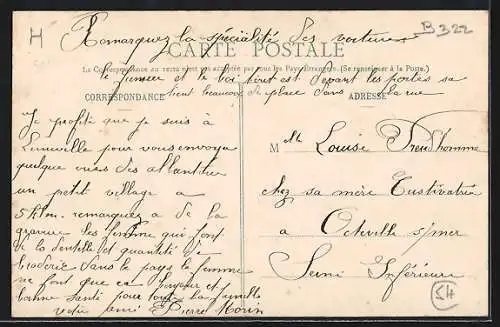 H
B 322
Remarquez la spécialité des voitures
CARTE POSTALE
La Correspondance au recto n'est pas acceptée par tous les Pays étrangers. (Se renseigner à la Poste.)
le fumier et le boi tout est devant les portes sa
tient beaucoup de place dans la rue
CORRESPONDANCE
ADRESSE
Je profite que je suis à
Luneville pour vous envoyer
quelque vues des
un petit village a
5 klm. remarquez a de la
les femme qui font
de la dentelle et quantité de
broderie dans le pays les femme
ne font que ca bonjour et
bonne santé pour toute la famille
votre ami Pierre Morin
Melle Louise Preudhomme
chez sa mère Cultivatrice
a Octeville s/mer
Seine Inférieure
SH